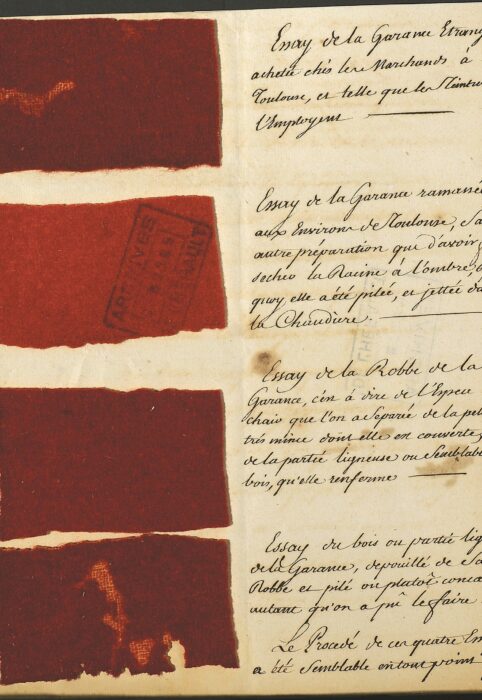 Essay de la Garance Etrang
achetée chés les Marchands à
Toulouse, et telle que les Teintu
l'Employent
Essay de la Garance ramassée
aux Environs de Toulouse, Sa
autre préparation que d'avoir
secher la Racine à l'ombre,
quoy elle a été pilée, et jettée da
la Chaudiere.
ARCHIVES
Essay de la Robbe de la
Garance, c'est à dire de l'Espece
chair que l'on a Separée de la pel
très mince dont elle est couverte,
de la partie ligneuse ou Semblabl
bois, qu'elle renferme
Essay du bois ou partie lig
de la Garance, depouillé de Sa
Robbe et pilé ou plutot conca
autant qu'on a pû le faire
Le Procedé de ces quatre Es
a été Semblable en tout point